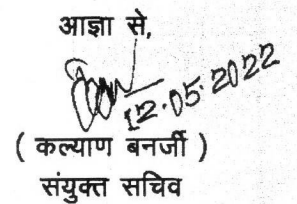 आज्ञा से,
12.05.2022
( कल्याण बनर्जी )
संयुक्त सचिव